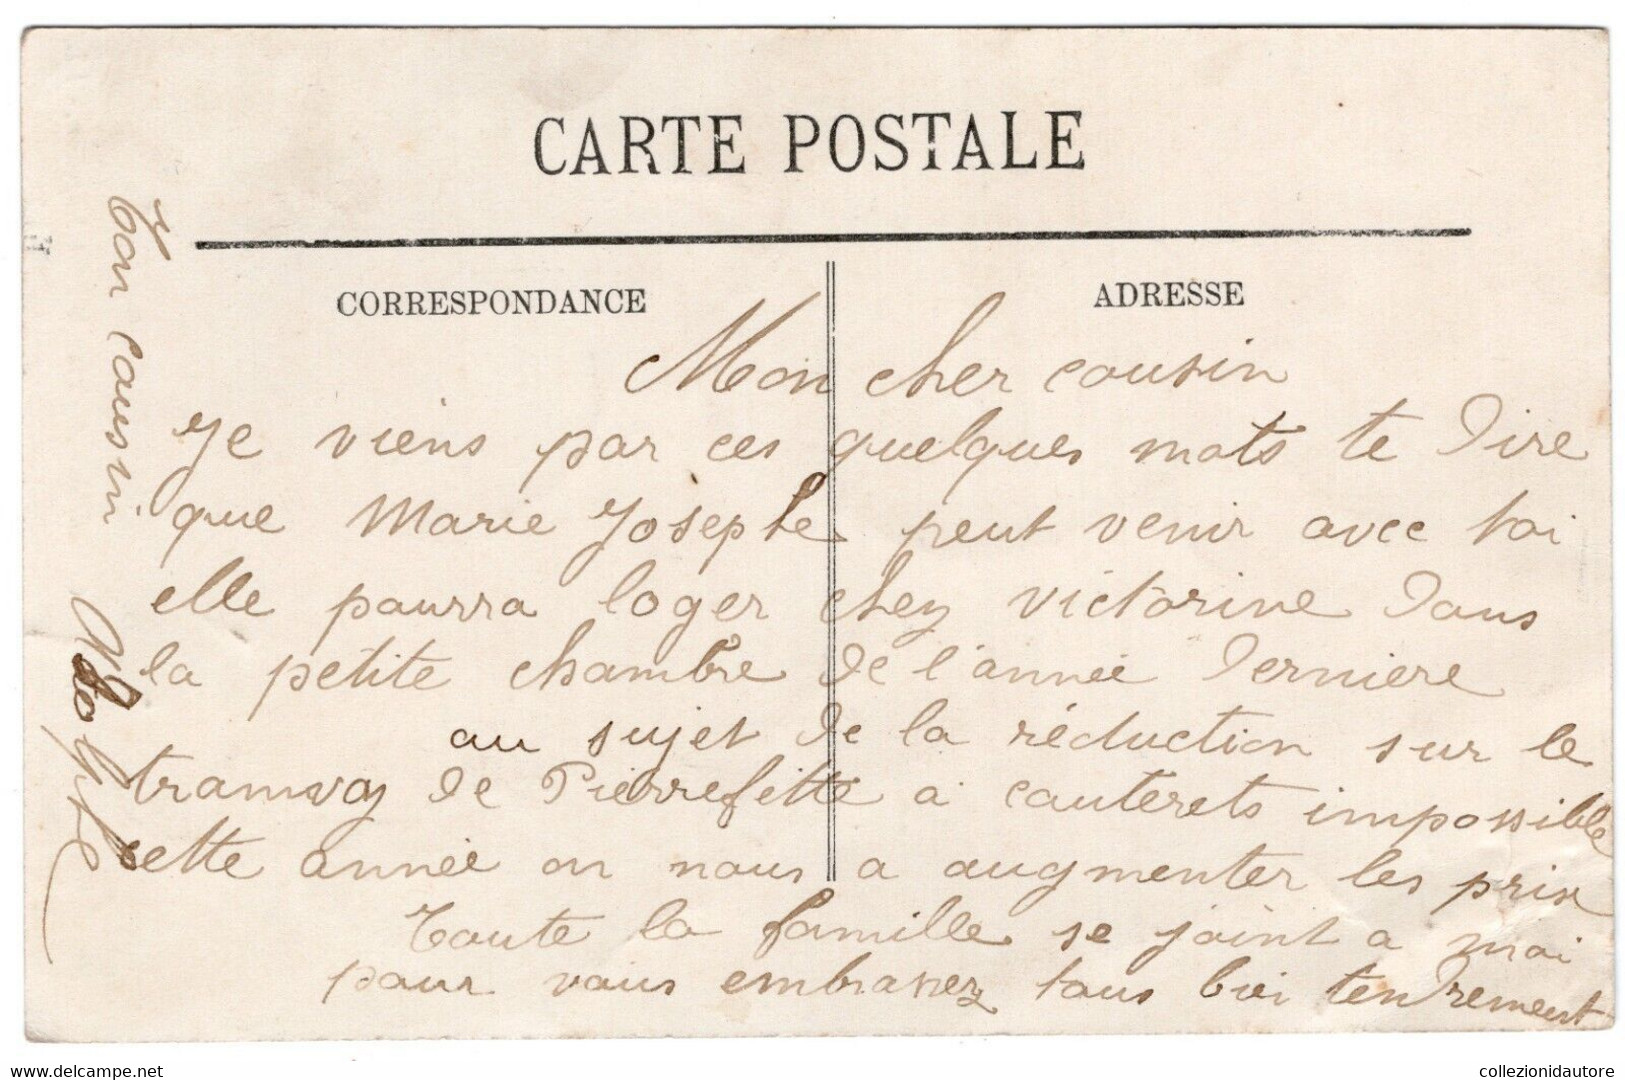 CARTE POSTALE
CORRESPONDANCE
ADRESSE
Mon cher cousin
Je viens par ces quelques mots te dire
que Marie Josephe peut venir avec toi
elle pourra loger chez victorine dans
la petite chambre de l'année derniere
au sujet de la réduction sur le
tramway de Pierrefitte a cauterets impossible
cette année on nous a augmenter les prix
Toute la famille se joint a moi
pour vous embrasser tous bien tendrement
Ton cousin
delcampe.net
collezionidautore